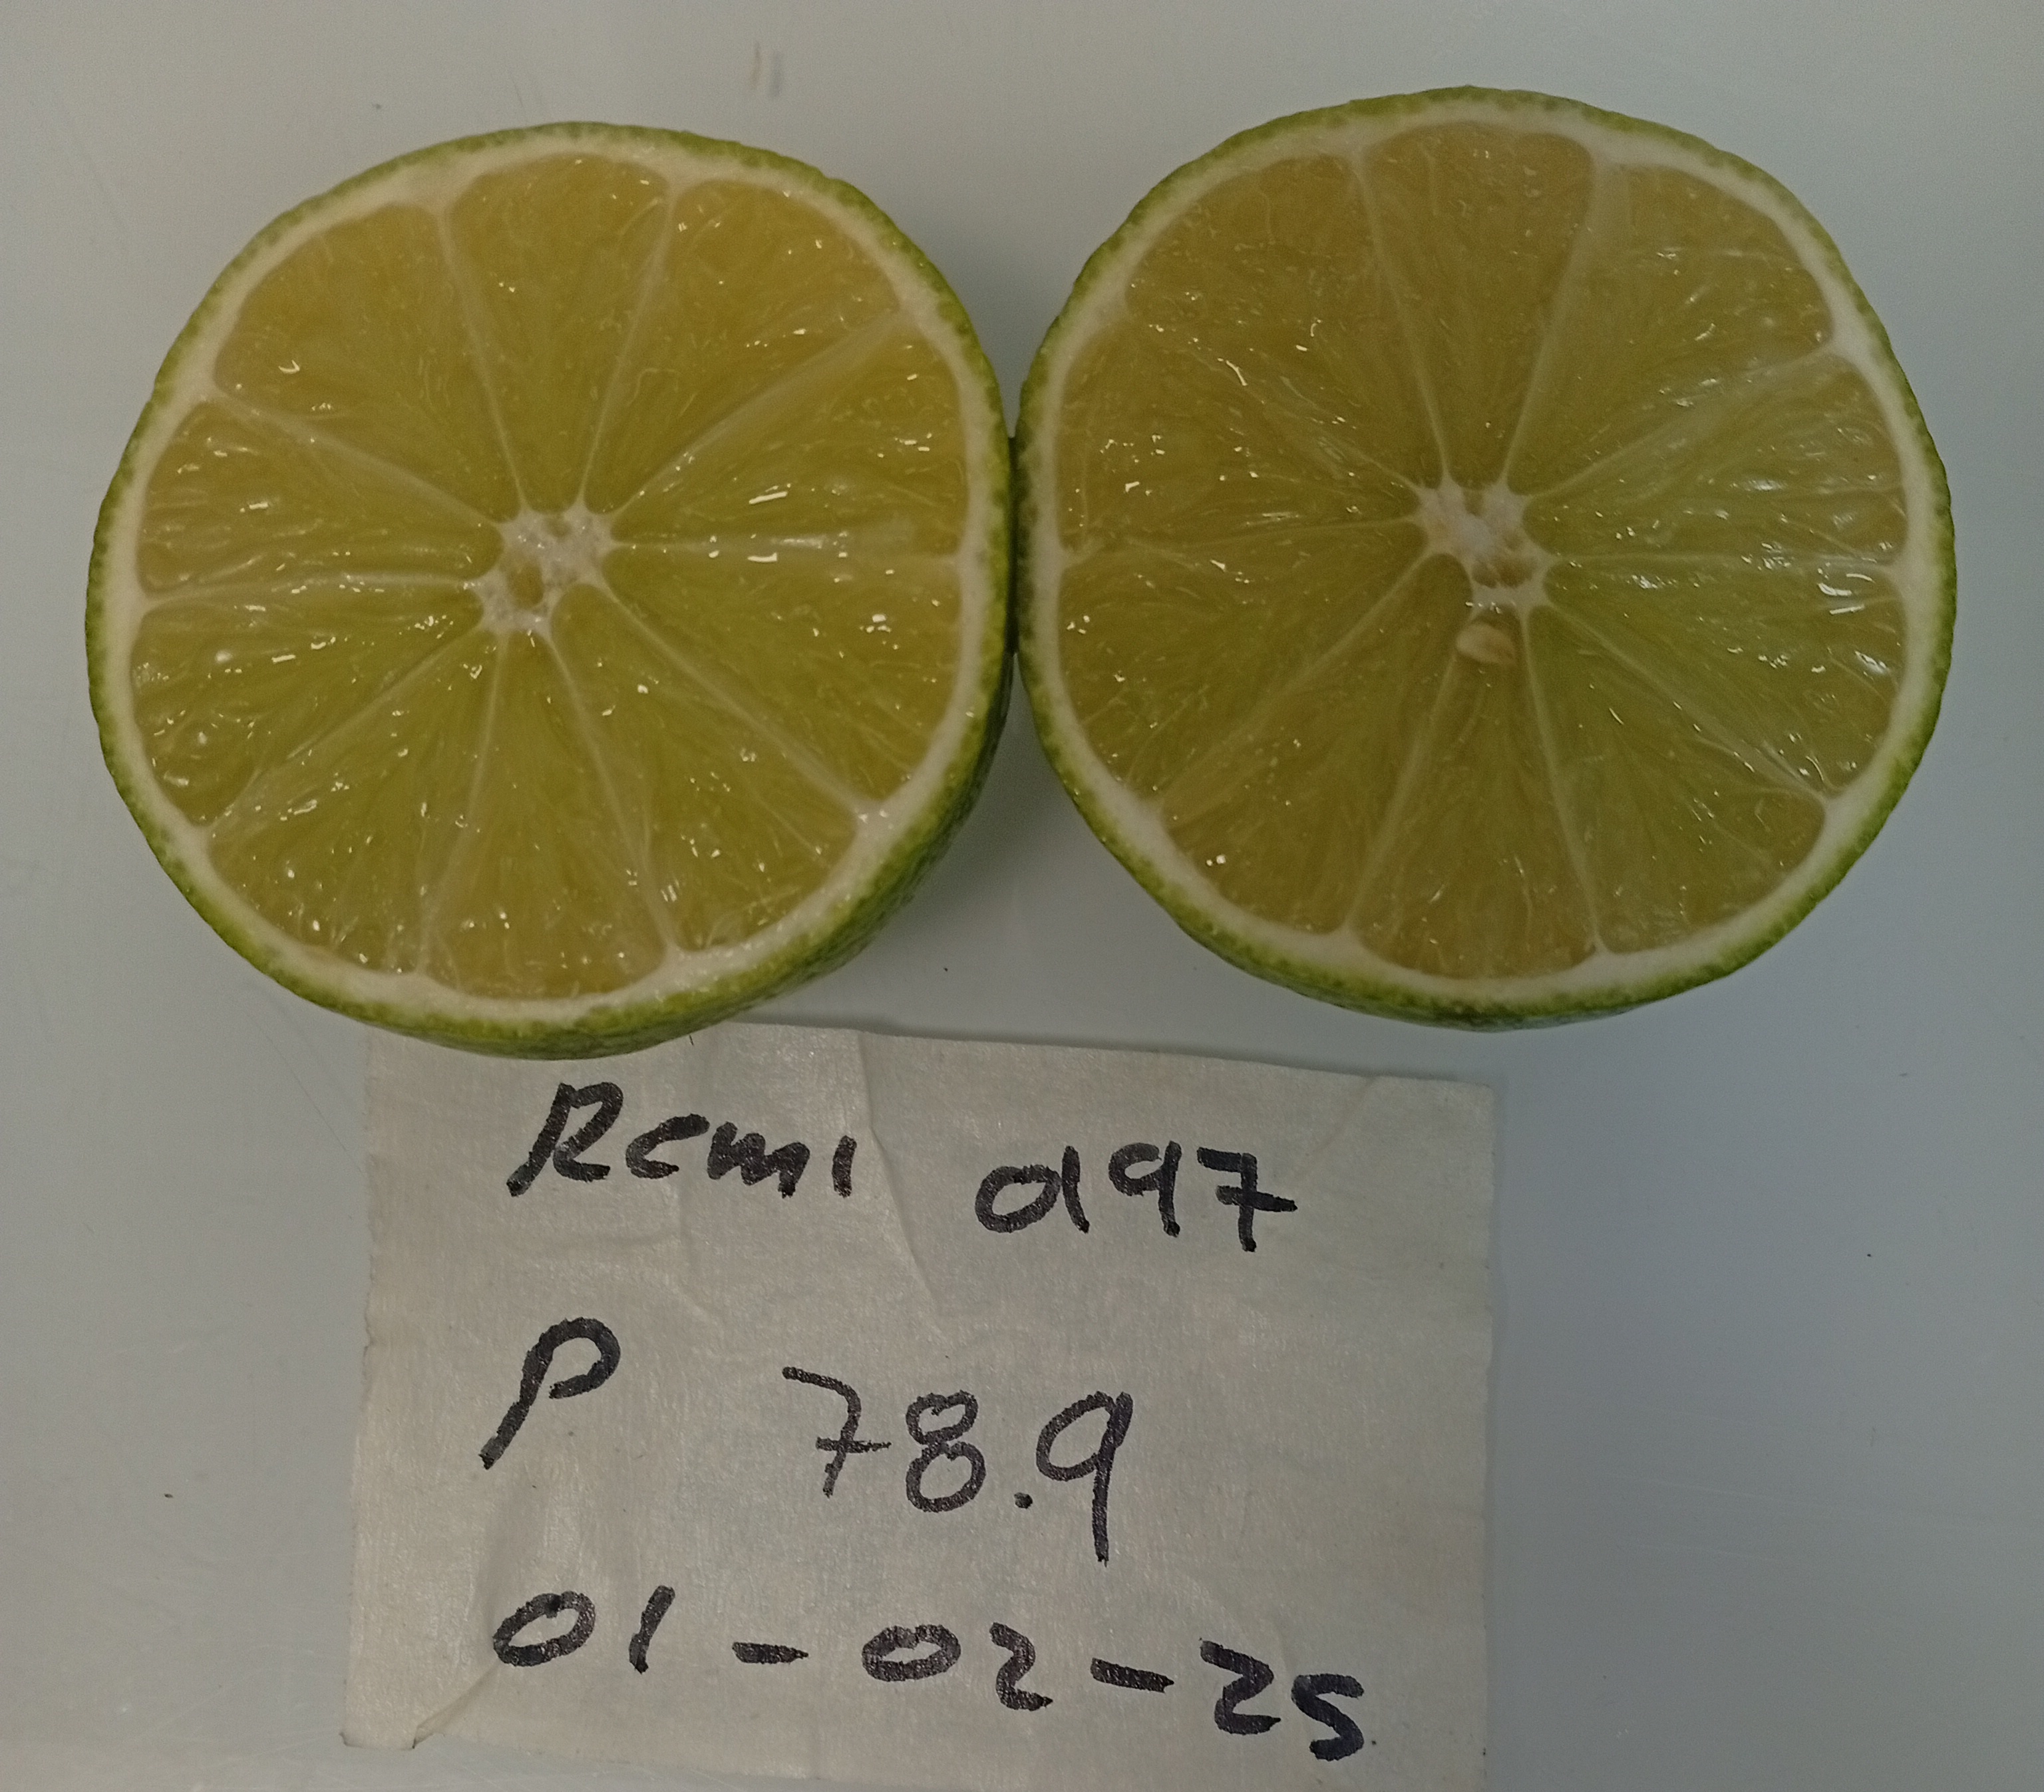 Remi 097
P 78.9
01-02-25